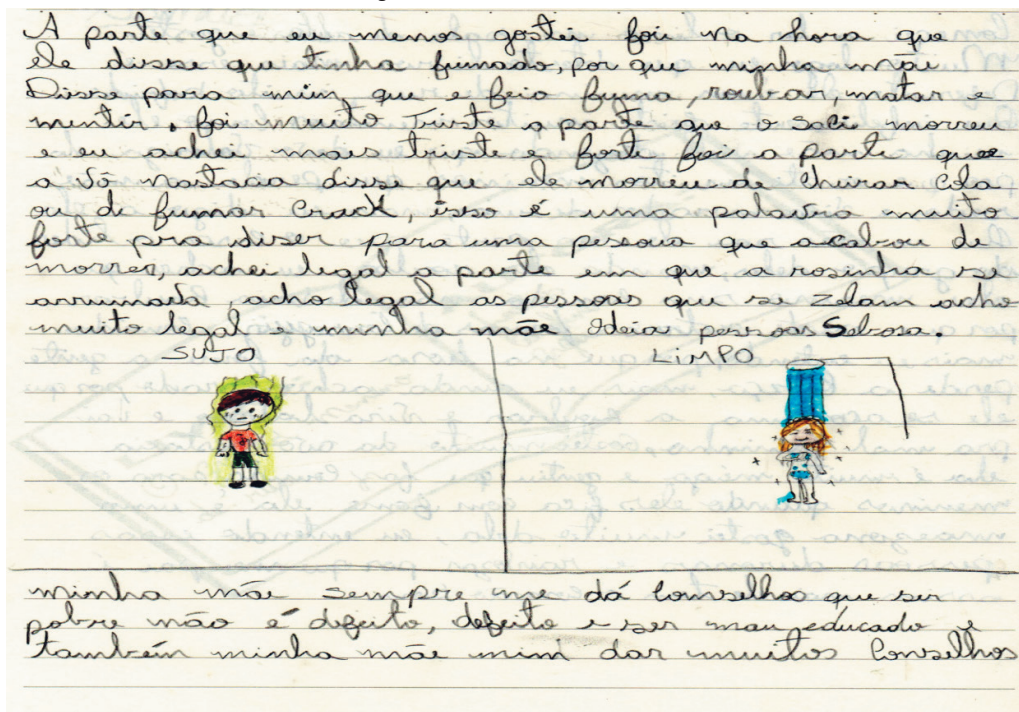 A parte que eu menos gostei foi na hora que
ele disse que tinha fumado, por que minha mãe
Disse para mim que e feio fuma, roubar, matar e
mentir. foi muito triste a parte que o saci morreu
e eu achei mais triste e forte foi a parte que
a vó nastacia disse que ele morreu de Cheirar Cola
ou de fumar Crack, isso é uma palavra muito
forte pra diser para uma pessoa que acabou de
morrer, achei legal a parte em que a rosinha se
arrumava, acho legal as pessoas que se zelam acho
muito legal e minha mãe odeia pessoas Sebosa.
SUJO LIMPO
minha mãe sempre me dá Conselhos que ser
pobre não é defeito, defeito e ser mau educado e
também minha mãe mim dar muitos Conselhos